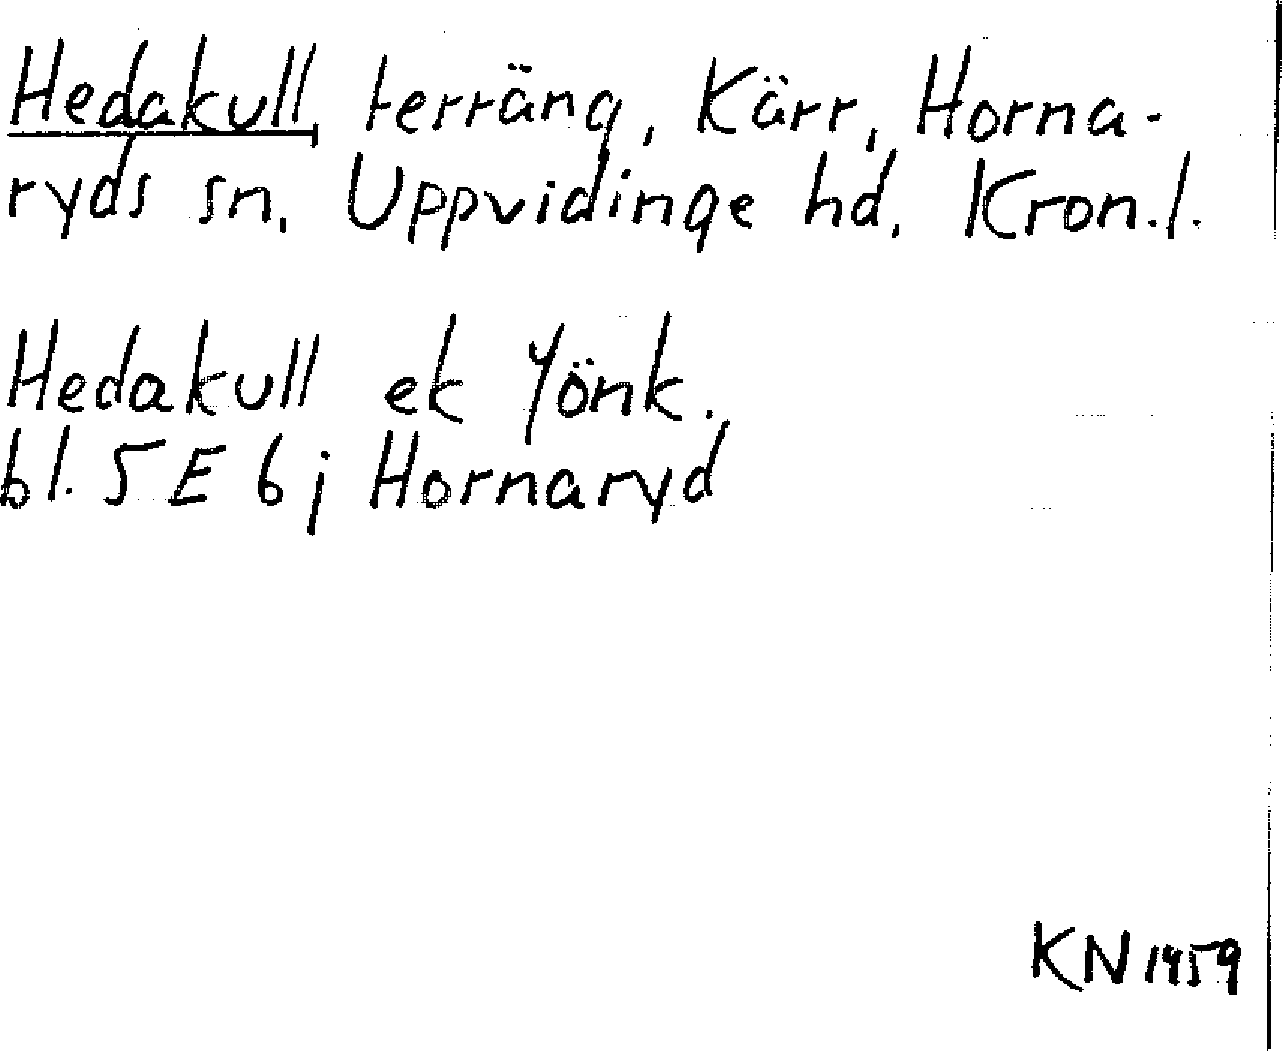 Hedakull, terräng, Kärr, Horna-
ryds sn. Uppvidinge hd. Kron.l.
Hedakull ek Jönk.
bl. 5 E 6 j Hornaryd
KN 1959